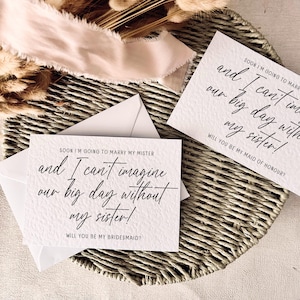 SOON I'M GOING TO MARRY MY MISTER
and I can't imagine
our big day without
my sister!
WILL YOU BE MY BRIDESMAID?
SOON I'M GOING TO MARRY
and I can't im
our big day
my sister!
WILL YOU BE MY MAID OF HONOUR?